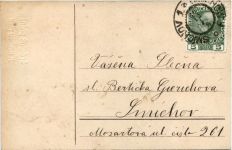 Vážená Slečna
sl. Bertička Gurichova
Smichov
Mozartova ul. čislo 261